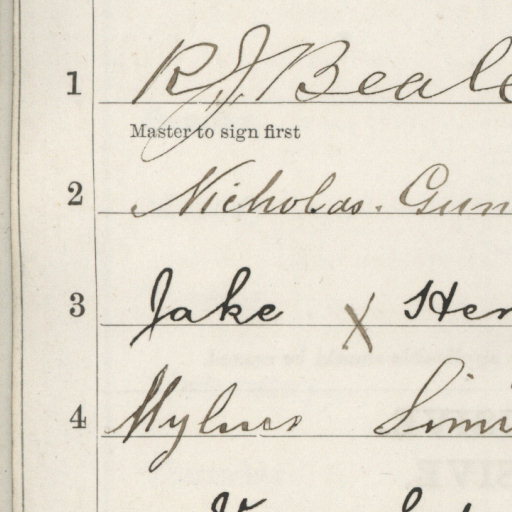 1 R J Beale
Master to sign first
2 Nicholas. Gun
3 Jake X Hen
4 Wylner Simm